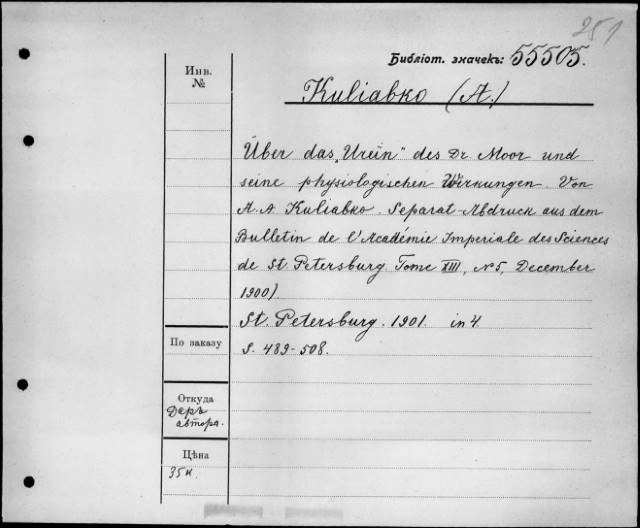 251
Библіот. значекъ: 55505.
Инв.
№
Kuliabko (A.)
Über das „Ureïn" des Dr. Moor und
seine physiologischen Wirkungen. Von
A. A. Kuliabko. Separat-Abdruck aus dem
Bulletin de l'Académie Imperiale des Sciences
de St. Petersburg. Tome XIII, №5, December
1900)
St. Petersburg. 1901. in 4.
По заказу
S. 489-508.
Откуда
Даръ
автора.
Цѣна
35 к.